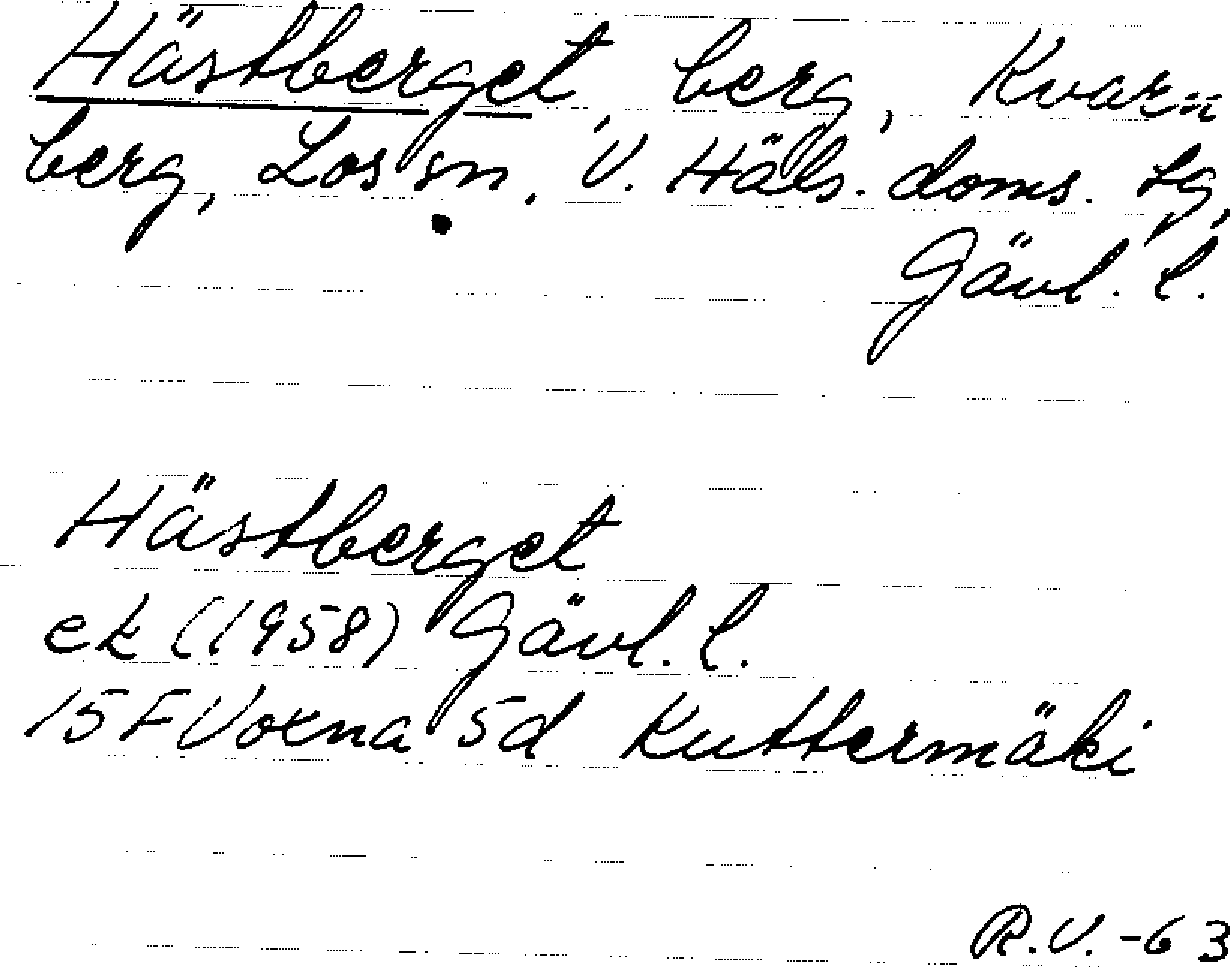 Hästberget, berg, Kvarn=
berg, Los sn, V. Häls. doms. lg,
Gävl. l.
Hästberget
ek (1958) Gävl. l.
15F Voxna 5d Kuttermäki
R.V. -63